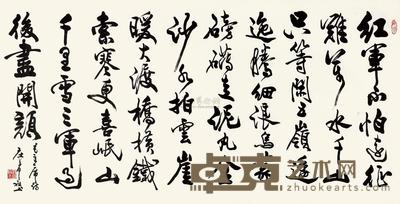 紅軍不怕遠征
難萬水千山
只等閒五嶺逶
迤騰細浪烏蒙
磅礴走泥丸金
沙水拍雲崖
暖大渡橋橫鐵
索寒更喜岷山
千里雪三軍過
後盡開顏
毛主席詩